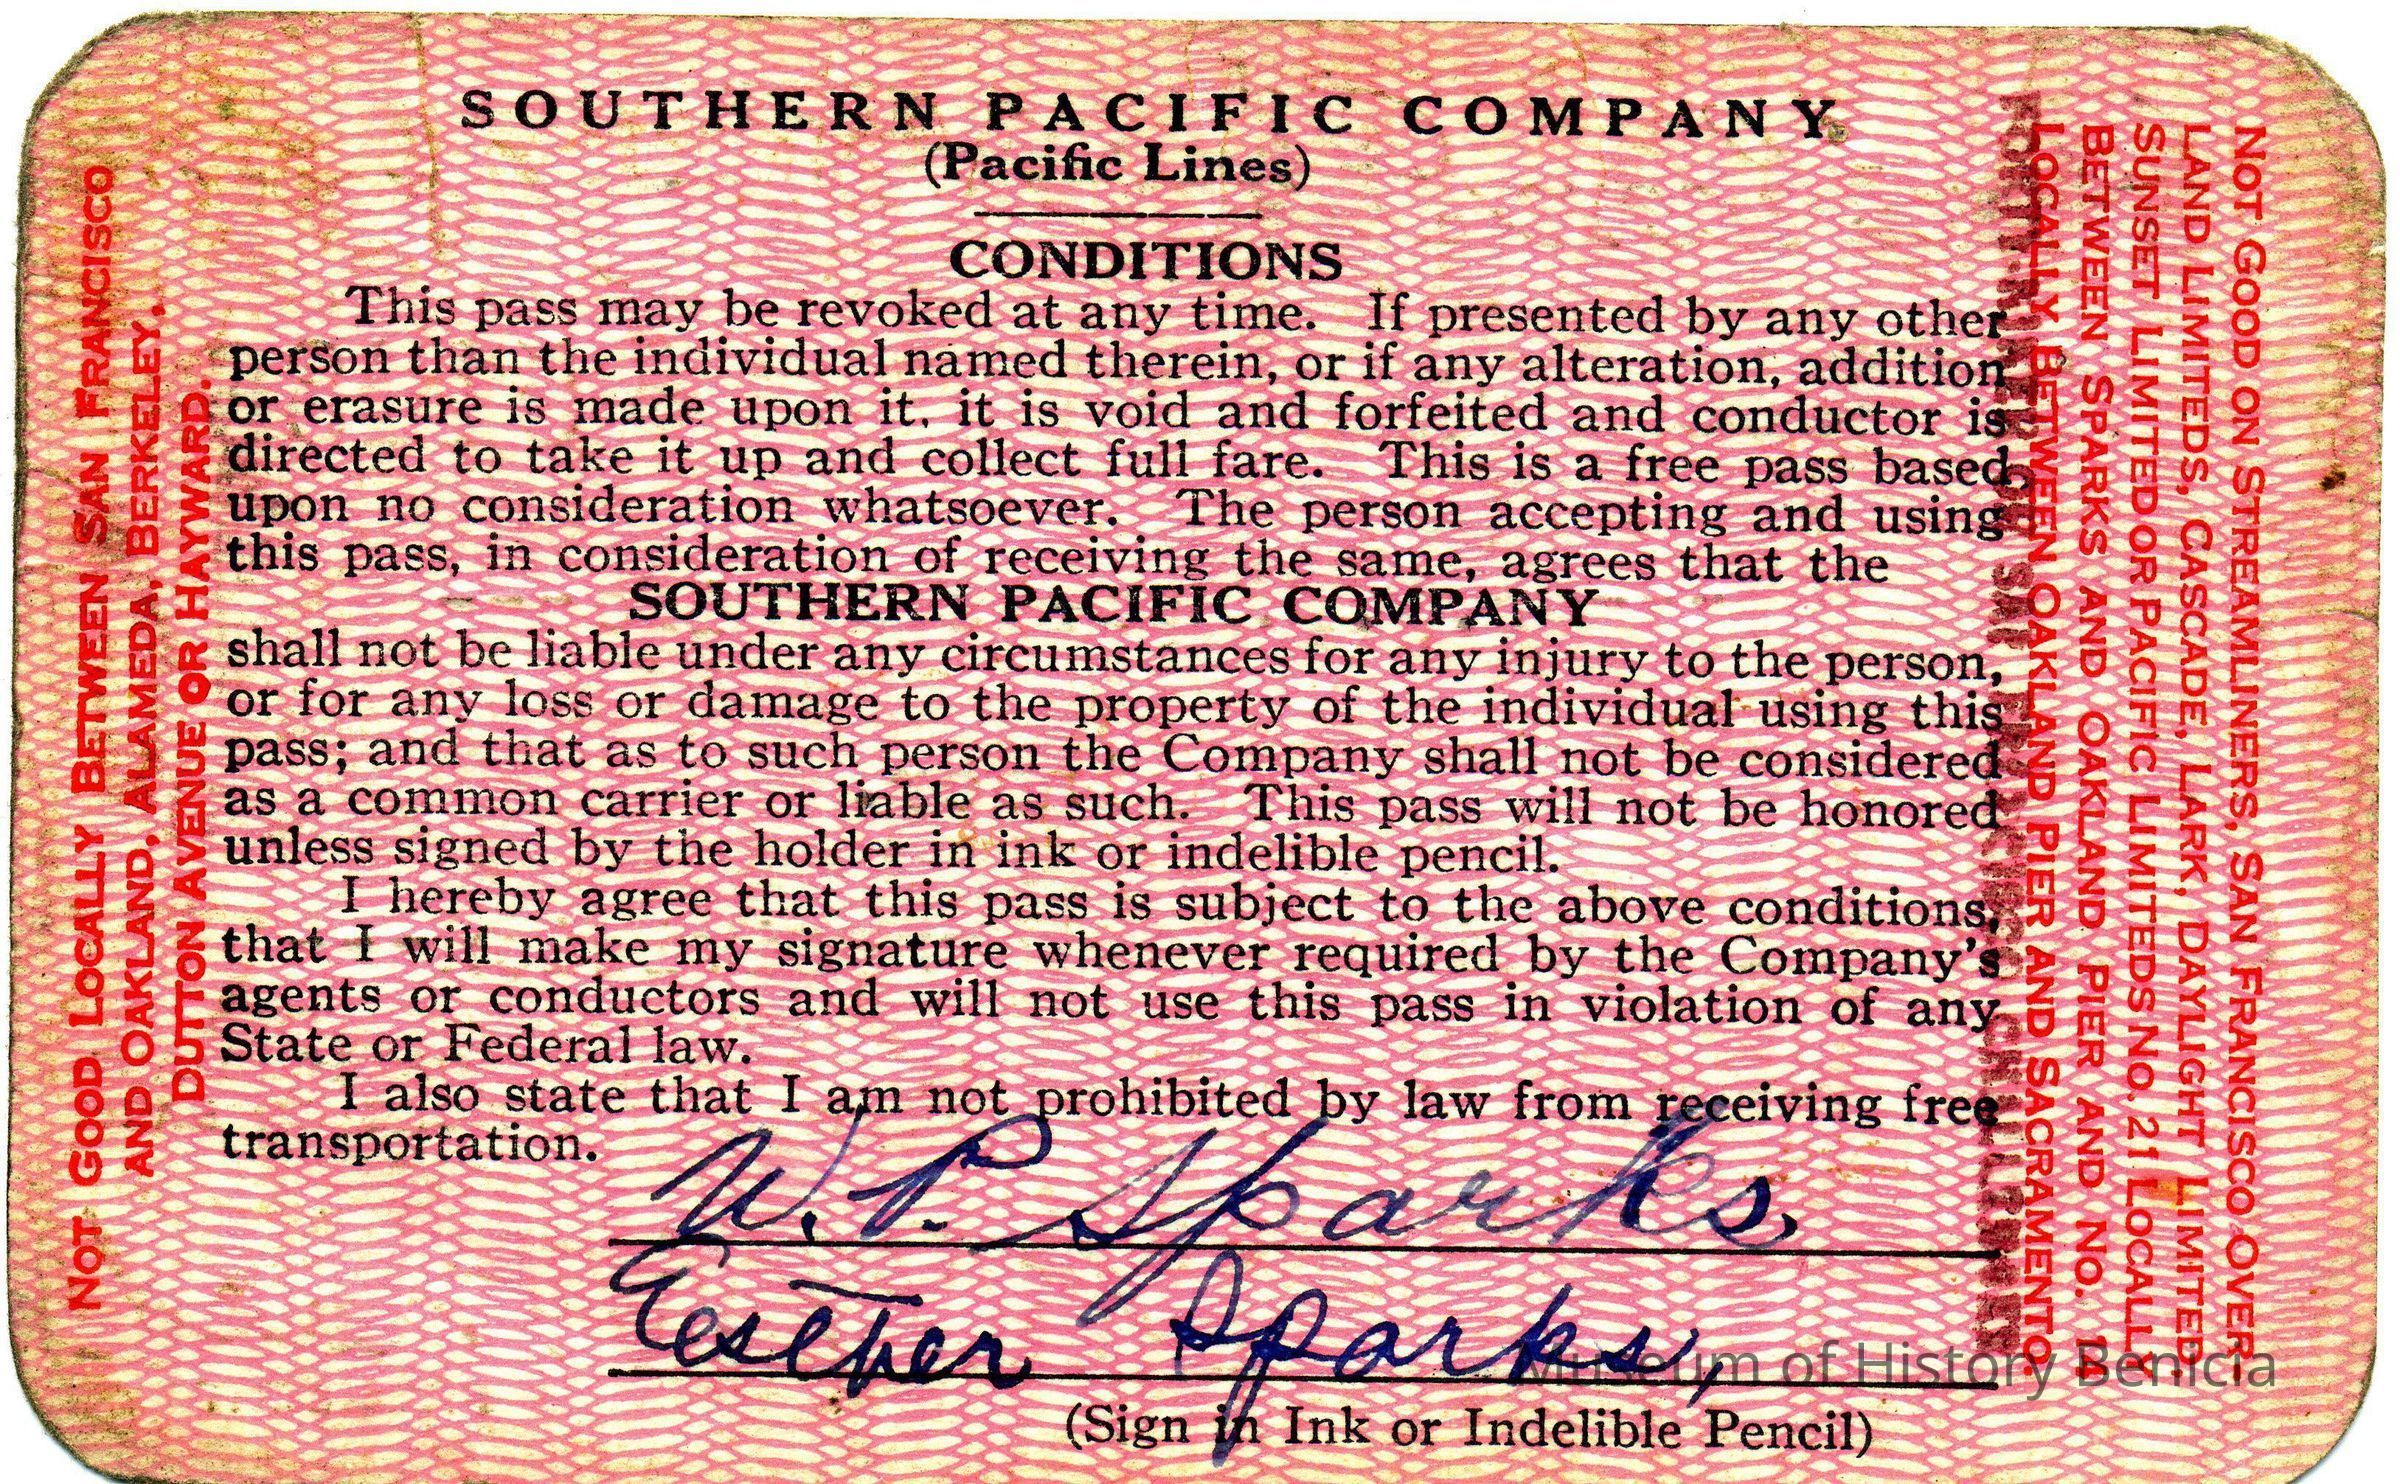 SOUTHERN PACIFIC COMPANY
(Pacific Lines)
CONDITIONS
This pass may be revoked at any time. If presented by any other
person than the individual named therein, or if any alteration, addition
or erasure is made upon it, it is void and forfeited and conductor is
directed to take it up and collect full fare. This is a free pass based
upon no consideration whatsoever. The person accepting and using
this pass, in consideration of receiving the same, agrees that the
SOUTHERN PACIFIC COMPANY
shall not be liable under any circumstances for any injury to the person,
or for any loss or damage to the property of the individual using this
pass; and that as to such person the Company shall not be considered
as a common carrier or liable as such. This pass will not be honored
unless signed by the holder in ink or indelible pencil.
I hereby agree that this pass is subject to the above conditions,
that I will make my signature whenever required by the Company's
agents or conductors and will not use this pass in violation of any
State or Federal law.
I also state that I am not prohibited by law from receiving free
transportation.
W. P. Sparks,
Eesther Sparks,
(Sign in Ink or Indelible Pencil)
NOT GOOD LOCALLY BETWEEN SAN FRANCISCO
AND OAKLAND, ALAMEDA, BERKELEY,
DUTTON AVENUE OR HAYWARD.
NOT GOOD ON STREAMLINERS, SAN FRANCISCO OVER
LAND LIMITEDS, CASCADE, LARK, DAYLIGHT LIMITED
SUNSET LIMITED OR PACIFIC LIMITEDS NO. 21 LOCALLY
BETWEEN SPARKS AND OAKLAND PIER AND NO. 12
LOCALLY BETWEEN OAKLAND PIER AND SACRAMENTO.
Museum of History Benicia